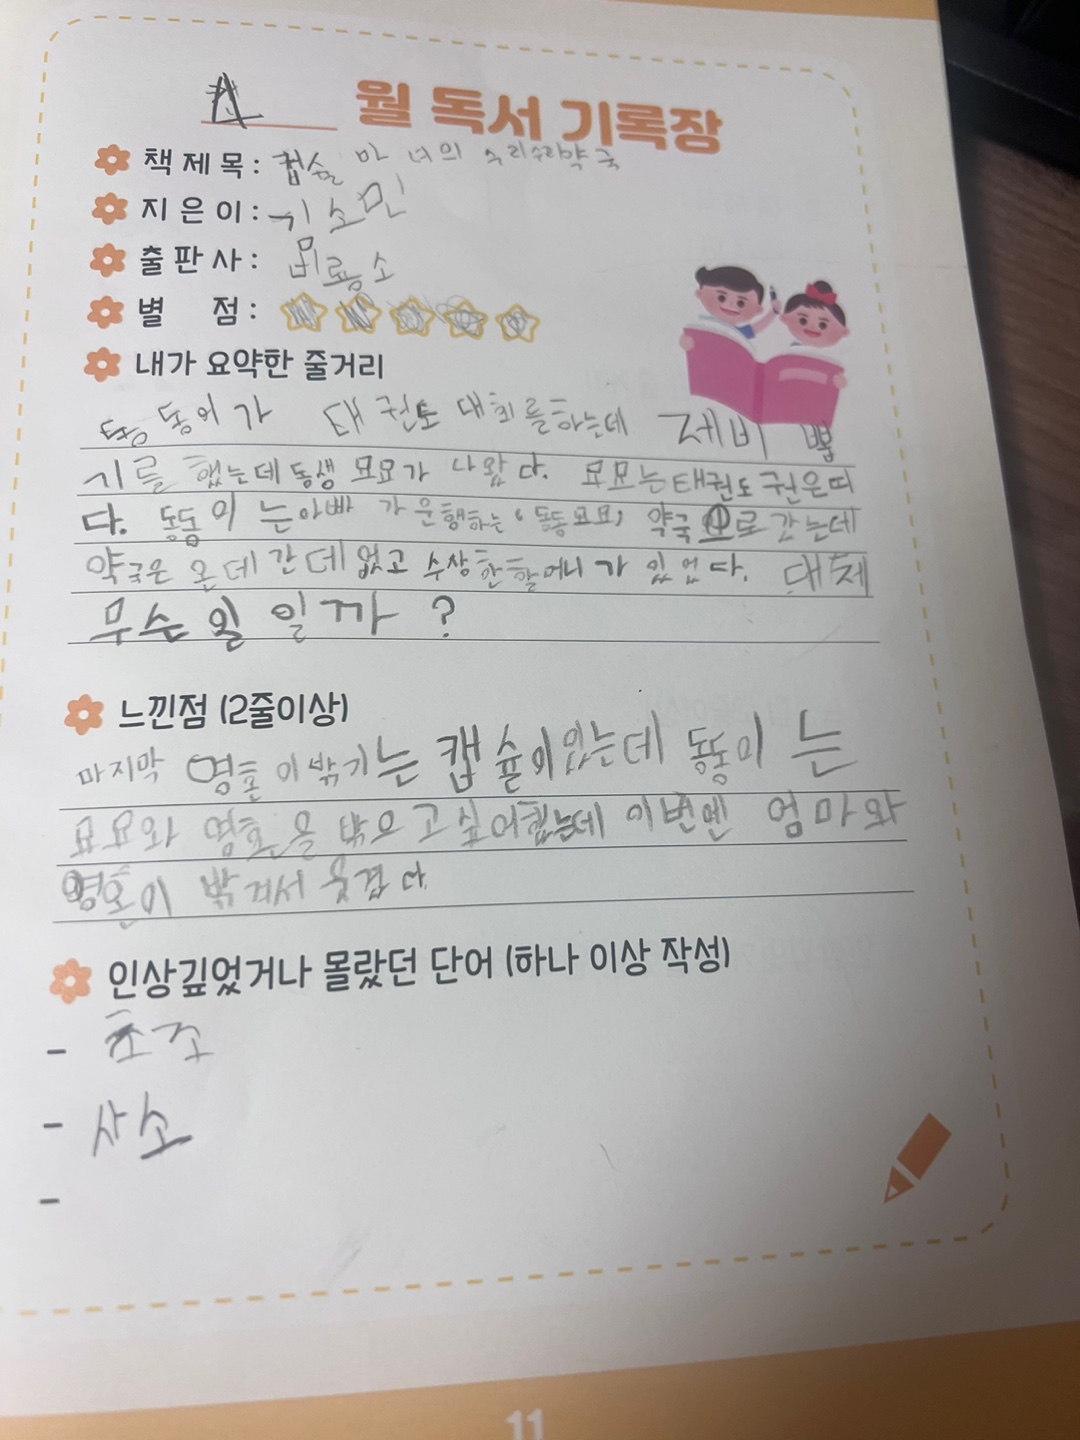 월 독서 기록장
책 제목 : 캡슐 마녀의 수리수리약국
지은이 : 기소민
출판사 : 비룡소
별 점 :
내가 요약한 줄거리
동동이가 태권도 대회를하는데 제비 뽑
기를 했는데 동생 묘묘가 나왔다. 묘묘는태권도 권은띠
다. 동동이 는아빠 가 운행하는, 동동묘묘, 약국으로 간는데
약국은 온데간데없고 수상한할머니가 있었다. 대체
무슨 일 일까 ?
느낀점 (2줄이상)
마지막 영혼이밖기는 캡슐이있는데 동동이 는
묘묘와 영혼을 밖으고싶어했는데 이번엔 엄마와
영혼이 밖겨서 웃겼다.
인상깊었거나 몰랐던 단어 (하나 이상 작성)
- 초조
- 사소
-
11